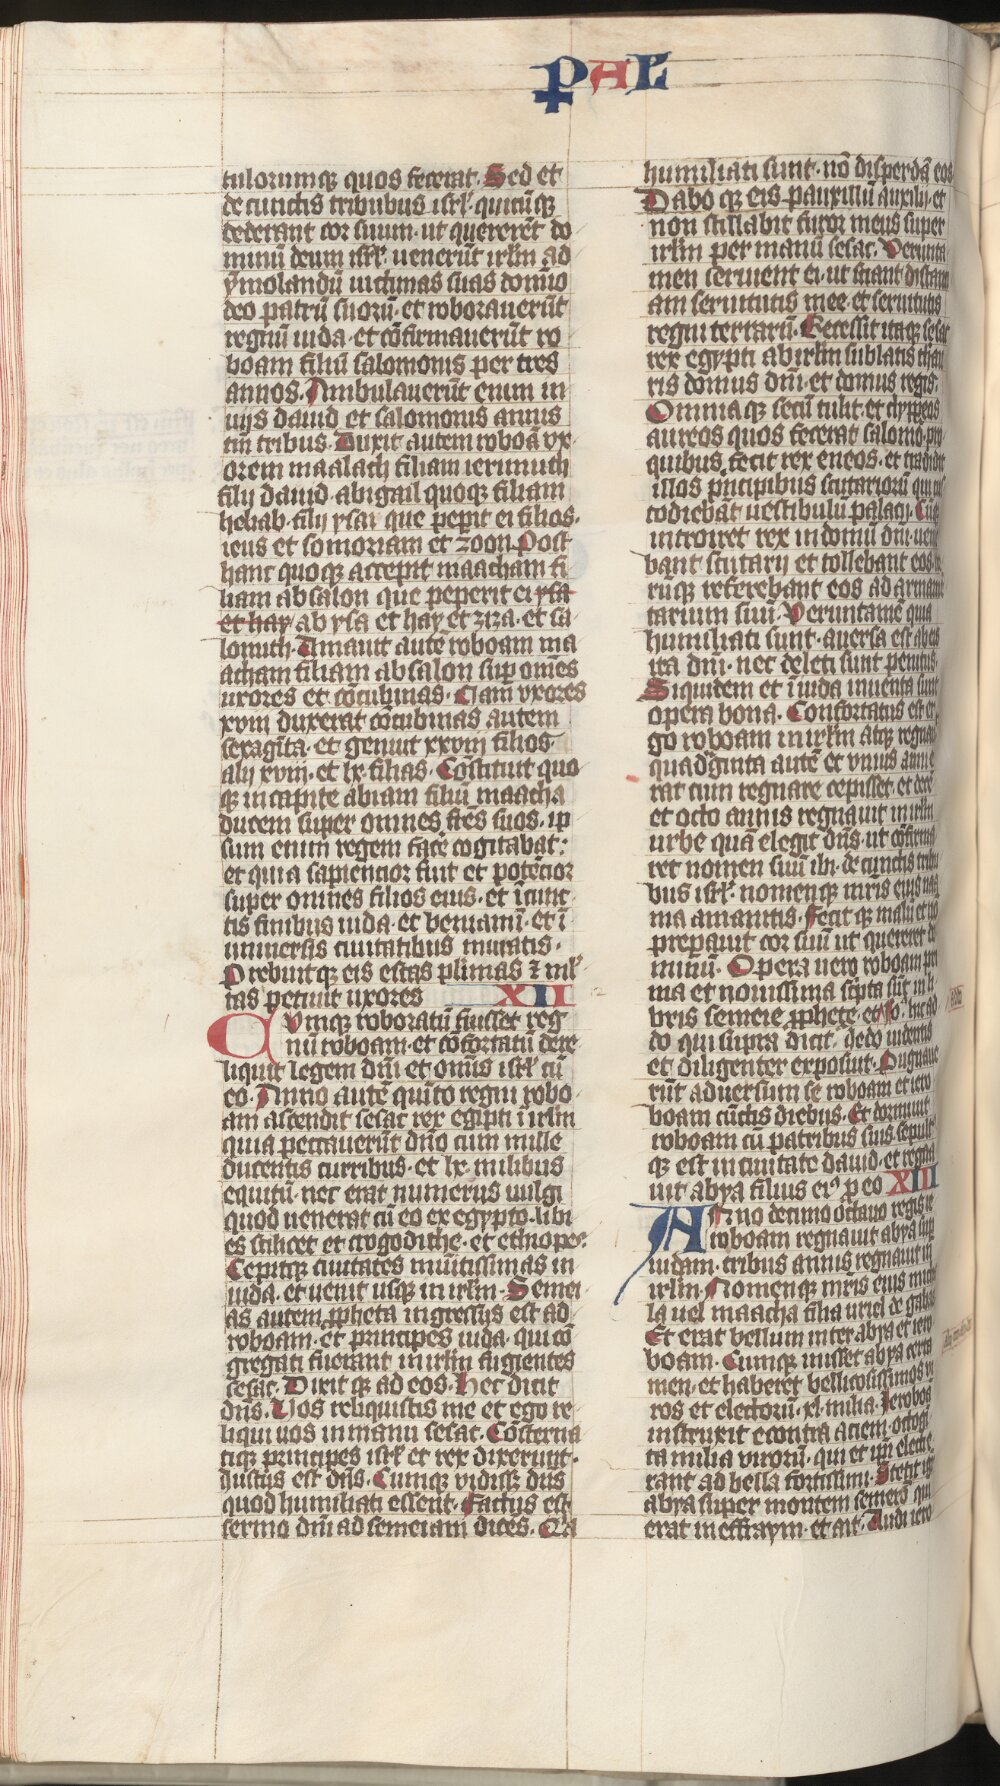 PAL
tulorumqꝫ quos fecerat. Sed et
de cunctis tribubus isrl. quicūqꝫ
dederant cor suum. ut quererēt do
minū deum isrl. uenerūt irlm ad
ymolandū uictimas suas domīo
deo patrū suorū. et roborauerūt
regnū iuda. et cōfirmauerūt ro
boam filiū salomonis per tres
annos. Ambulauerūt enim in
uijs dauid et salomonis annis
tm̄ tribus. Duxit autem roboā vx
orem maalath filiam ierimuth
filij dauid. abigail quoqꝫ filiam
heliab. filij ysai que peperit ei filios.
ieus et somoriam et zoon. Post
hanc quoqꝫ accepit maacham fi
liam absalon que peperit ei ysa
et hay abysa et hay et ziza. et sa
lomith. Amauit autē roboam ma
acham filiam absalon sup̄ omēs
uxores et cōcubinas. Nam vxores
xviij duxerat cōcubinas autem
sexagīta. et genuit xxviij filios.
alij xviij. et lx. filias. Cōstituit quo
qꝫ in capite abiam filiū maacha
ducem super omnes frēs suos. ip
sum enim regem facē cogitabat:
et quia sapiencior fuit et potēcior
super omnes filios eius. et ī cunc
tis finibus iuda. et beniamī. et ī
uniuersis ciuitatibus muratis.
Prebuitqꝫ eis escas plīmas ⁊ ml̄
tas petiuit uxores XII
Cvmqꝫ roboratū fuisset reg
nū roboam. et cōfortatū dere
liquit legem dn̄i et omīs isrl. cū
eo. Anno autē quīto regni robo
am ascendit sesac rex egipti ī irlm
quia peccauerūt dn̄o cum mille
ducentis curribus. et lx. milibus
equitū. nec erat numerus uulgi
quod uenerat cū eo ex egypto. libi
es scilicet et trogodithe. et ethiopes.
Cepitqꝫ ciuitates mūitissimas in
iuda. et uenit usqꝫ in irlm. Semei
as autem ꝓpheta ingressus est ad
roboam. et principes iuda. qui cō
gregati fuerant in irlm fugientes
sesac. Dixit qꝫ ad eos. Hec dicit
dn̄s. Vos reliquistis me et ego re
liqui uos in manu sesac. Cōsterna
tiqꝫ principes isrl. et rex dixerunt.
Justus est dn̄s. Cumqꝫ vidissꝫ dn̄s
quod humiliati essent. factus est
sermo dn̄i ad semeiam dicēs. Qa
humiliati sunt. nō disperdā eos
Dabo qꝫ eis pauxillū auxilij. et
non stillabit furor meus super
irlm per manū sesac. Verunta
men seruient ei. ut sciant distan
am seruitutis mee. et seruitutis
regni terrarū. Recessit itaqꝫ sesac
rex egypti ab irlm sublatis thau
ris domus dn̄i. et domus regis.
Omnia qꝫ secū tulit. et clypeos
aureos quos fecerat salomo. pro
quibus fecit rex eneos. et tradidit
illos pn̄cipibus scutariorū qui cus
todiebāt uestibulū palacij. Cūqꝫ
introiret rex in domū dn̄i. ueni
bant scutarij et tollebant eos. ite
rūqꝫ referebant eos ad armam̄
tarium suū. Veruntamē quia
humiliati sunt. auersa est ab eis
ira dn̄i. nec deleti sunt penitus.
Siquidem et ī iuda inuenta sunt
opera bona. Confortatus est er
go roboam in irlm atqꝫ regnauit
quadᵃginta autē et vnius anni e
rat cum regnare cepisset. et decē
et octo annis regnauit in irlm
urbe quā elegit dn̄s. ut cōfirma
ret nomen suū ibi. de cunctis tribu
bus isrl. nomenqꝫ mr̄is eius naa
ma amanitis. Fecit qꝫ malū et nō
preparauit cor suū ut quereret do
minū. Opera uero roboam pri
ma et nouissima scripta sūt in li
bris semeie ꝓphete. et
do qui supra dicit. dedo uidentis
et diligenter exposiut. Pugnaue
rūt aduersum se roboam et iero
boam cūctis diebus. Et dormiuit
roboam cū patribus suis. sepult
qꝫ est in ciuitate dauid. et regna
uit abya filius eiꝰ p̄ eo XIII
Anno decimo octauo regis ie
roboam regnauit abya sup̄
iudam. tribus annis regnauit in
irlm. Nomenqꝫ mr̄is eius micha
la uel maacha filia uriel de gabaa
Et erat bellum inter abya et iero
boam. Cumqꝫ inisset abya certa
men. et haberet bellicosissimos vi
ros et electorū. xl. milia. Jeroboā
instruxit econtra aciem. octogī
ta milia virorū. qui et ipi electi e
rant ad bella fortissimi. Stetit igr̄
abya super montem semerō qui
erat in effraym. et ait. Audi iero